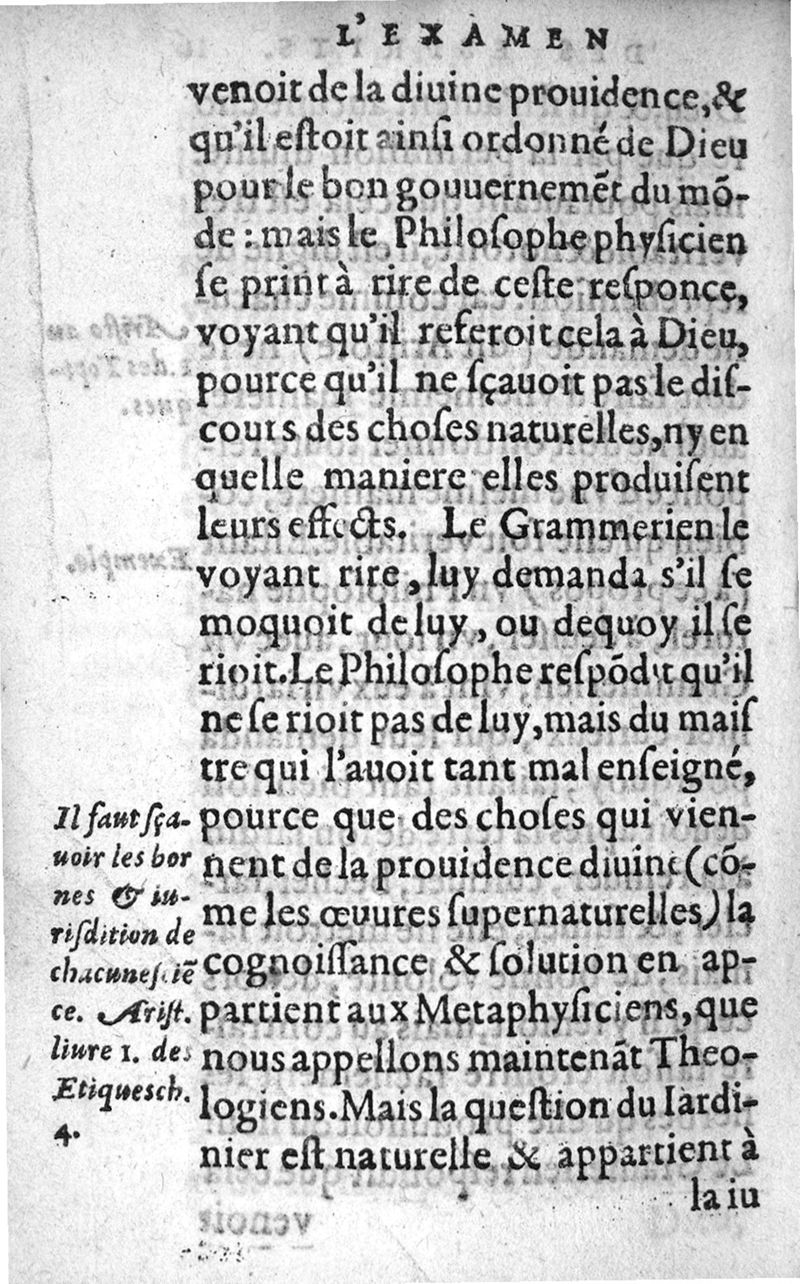 L'EXAMEN
venoit de la diuine prouidence, &
qu'il eſtoit ainſi ordonné de Dieu
pour le bon gouuernemẽt du mõ-
de : mais le Philoſophe phyſicien
ſe print à rire de ceſte reſponce,
voyant qu'il referoit cela à Dieu,
pource qu'il ne ſçauoit pas le diſ-
cours des choſes naturelles, ny en
quelle maniere elles produiſent
leurs effects. Le Grammerien le
voyant rire, luy demanda s'il ſe
moquoit de luy, ou dequoy il ſe
rioit. Le Philoſophe reſpõdit qu'il
ne ſe rioit pas de luy, mais du maiſ
tre qui l'auoit tant mal enſeigné,
pource que des choſes qui vien-
nent de la prouidence diuine (cõ-
me les œuures ſupernaturelles) la
cognoiſſance & ſolution en ap-
partient aux Metaphyſiciens, que
nous appellons maintenãt Theo-
logiens. Mais la queſtion du Iardi-
nier eſt naturelle & appartient à
la iu
Il faut ſça-
uoir les bor
nes & iu-
riſdition de
chacune ſciẽ
ce. Ariſt.
liure 1. des
Etiques ch.
4.